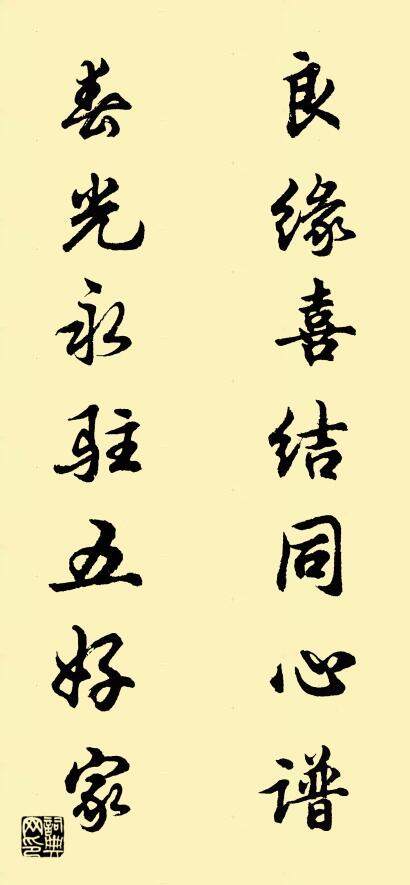 良缘喜结同心谱
春光永驻五好家
詞典网印